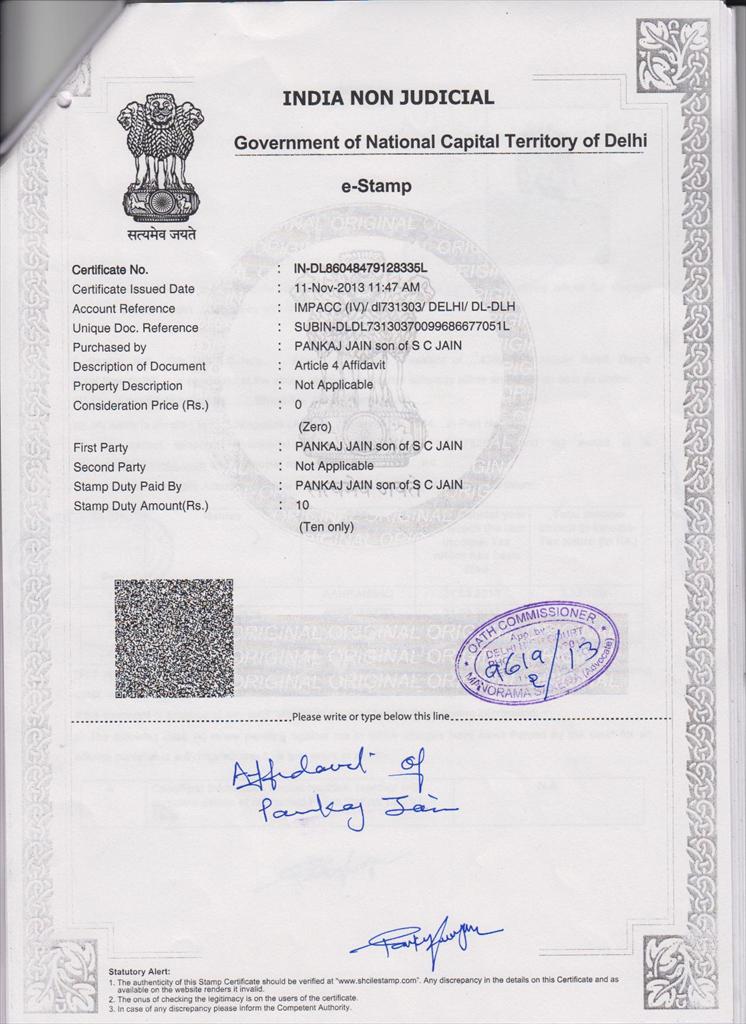 INDIA NON JUDICIAL
Government of National Capital Territory of Delhi
e-Stamp
सत्यमेव जयते
Certificate No. : IN-DL86048479128335L
Certificate Issued Date : 11-Nov-2013 11:47 AM
Account Reference : IMPACC (IV)/ dl731303/ DELHI/ DL-DLH
Unique Doc. Reference : SUBIN-DLDL73130370099686677051L
Purchased by : PANKAJ JAIN son of S C JAIN
Description of Document : Article 4 Affidavit
Property Description : Not Applicable
Consideration Price (Rs.) : 0
(Zero)
First Party : PANKAJ JAIN son of S C JAIN
Second Party : Not Applicable
Stamp Duty Paid By : PANKAJ JAIN son of S C JAIN
Stamp Duty Amount(Rs.) : 10
(Ten only)
OATH COMMISSIONER
App. by
DELHI COURT
MANORAMA (Advocate)
Please write or type below this line
Affidavit of
Pankaj Jain
Statutory Alert:
1. The authenticity of this Stamp Certificate should be verified at "www.shcilestamp.com". Any discrepancy in the details on this Certificate and as
available on the website renders it invalid.
2. The onus of checking the legitimacy is on the users of the certificate.
3. In case of any discrepancy please inform the Competent Authority.